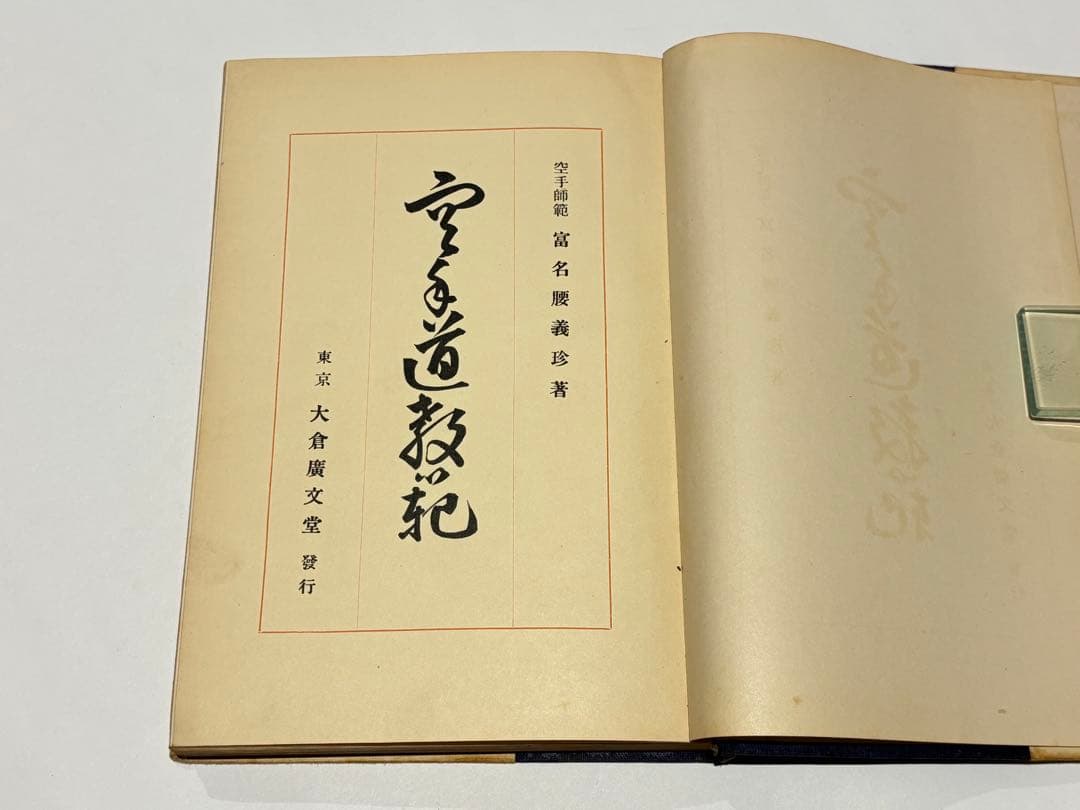 空手師範 富名腰義珍著
空手道教範
東京 大倉廣文堂 發行